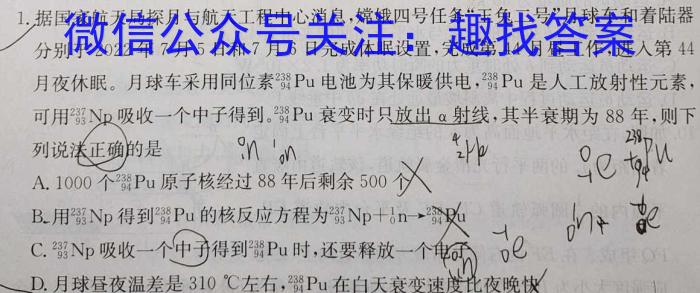 1.据国家航天局探月与航天工程中心消息,嫦娥四号任务"玉兔二号"月球车和着陆器
微信公众号关注:趣找答案
分别于2022年7月5日和7月 日完成休眠设置,完成第 月昼工作,进入第44
月夜休眠。月球车采用同位素²³⁸₉₄Pu电池为其保暖供电,²³⁸₉₄Pu是人工放射性元素,
可用²³⁷₉₃Np吸收一个中子得到。²³⁸₉₄Pu衰变时只放出α射线,其半衰期为88年,则下
列说法正确的是
¹₀n ⁴₂He ⁰₋₁e ²³⁸₉₄Pu
A.1000个²³⁸₉₄Pu原子核经过88年后剩余500个
B.用²³⁷₉₃Np得到²³⁸₉₄Pu的核反应方程为²³⁷₉₃Np+¹₀n→²³⁸₉₄Pu
C.²³⁷₉₃Np吸收一个中子得到²³⁸₉₄Pu时,还要释放一个电子
D.月球昼夜温差是310℃左右,²³⁸₉₄Pu在白天衰变速度比夜晚快